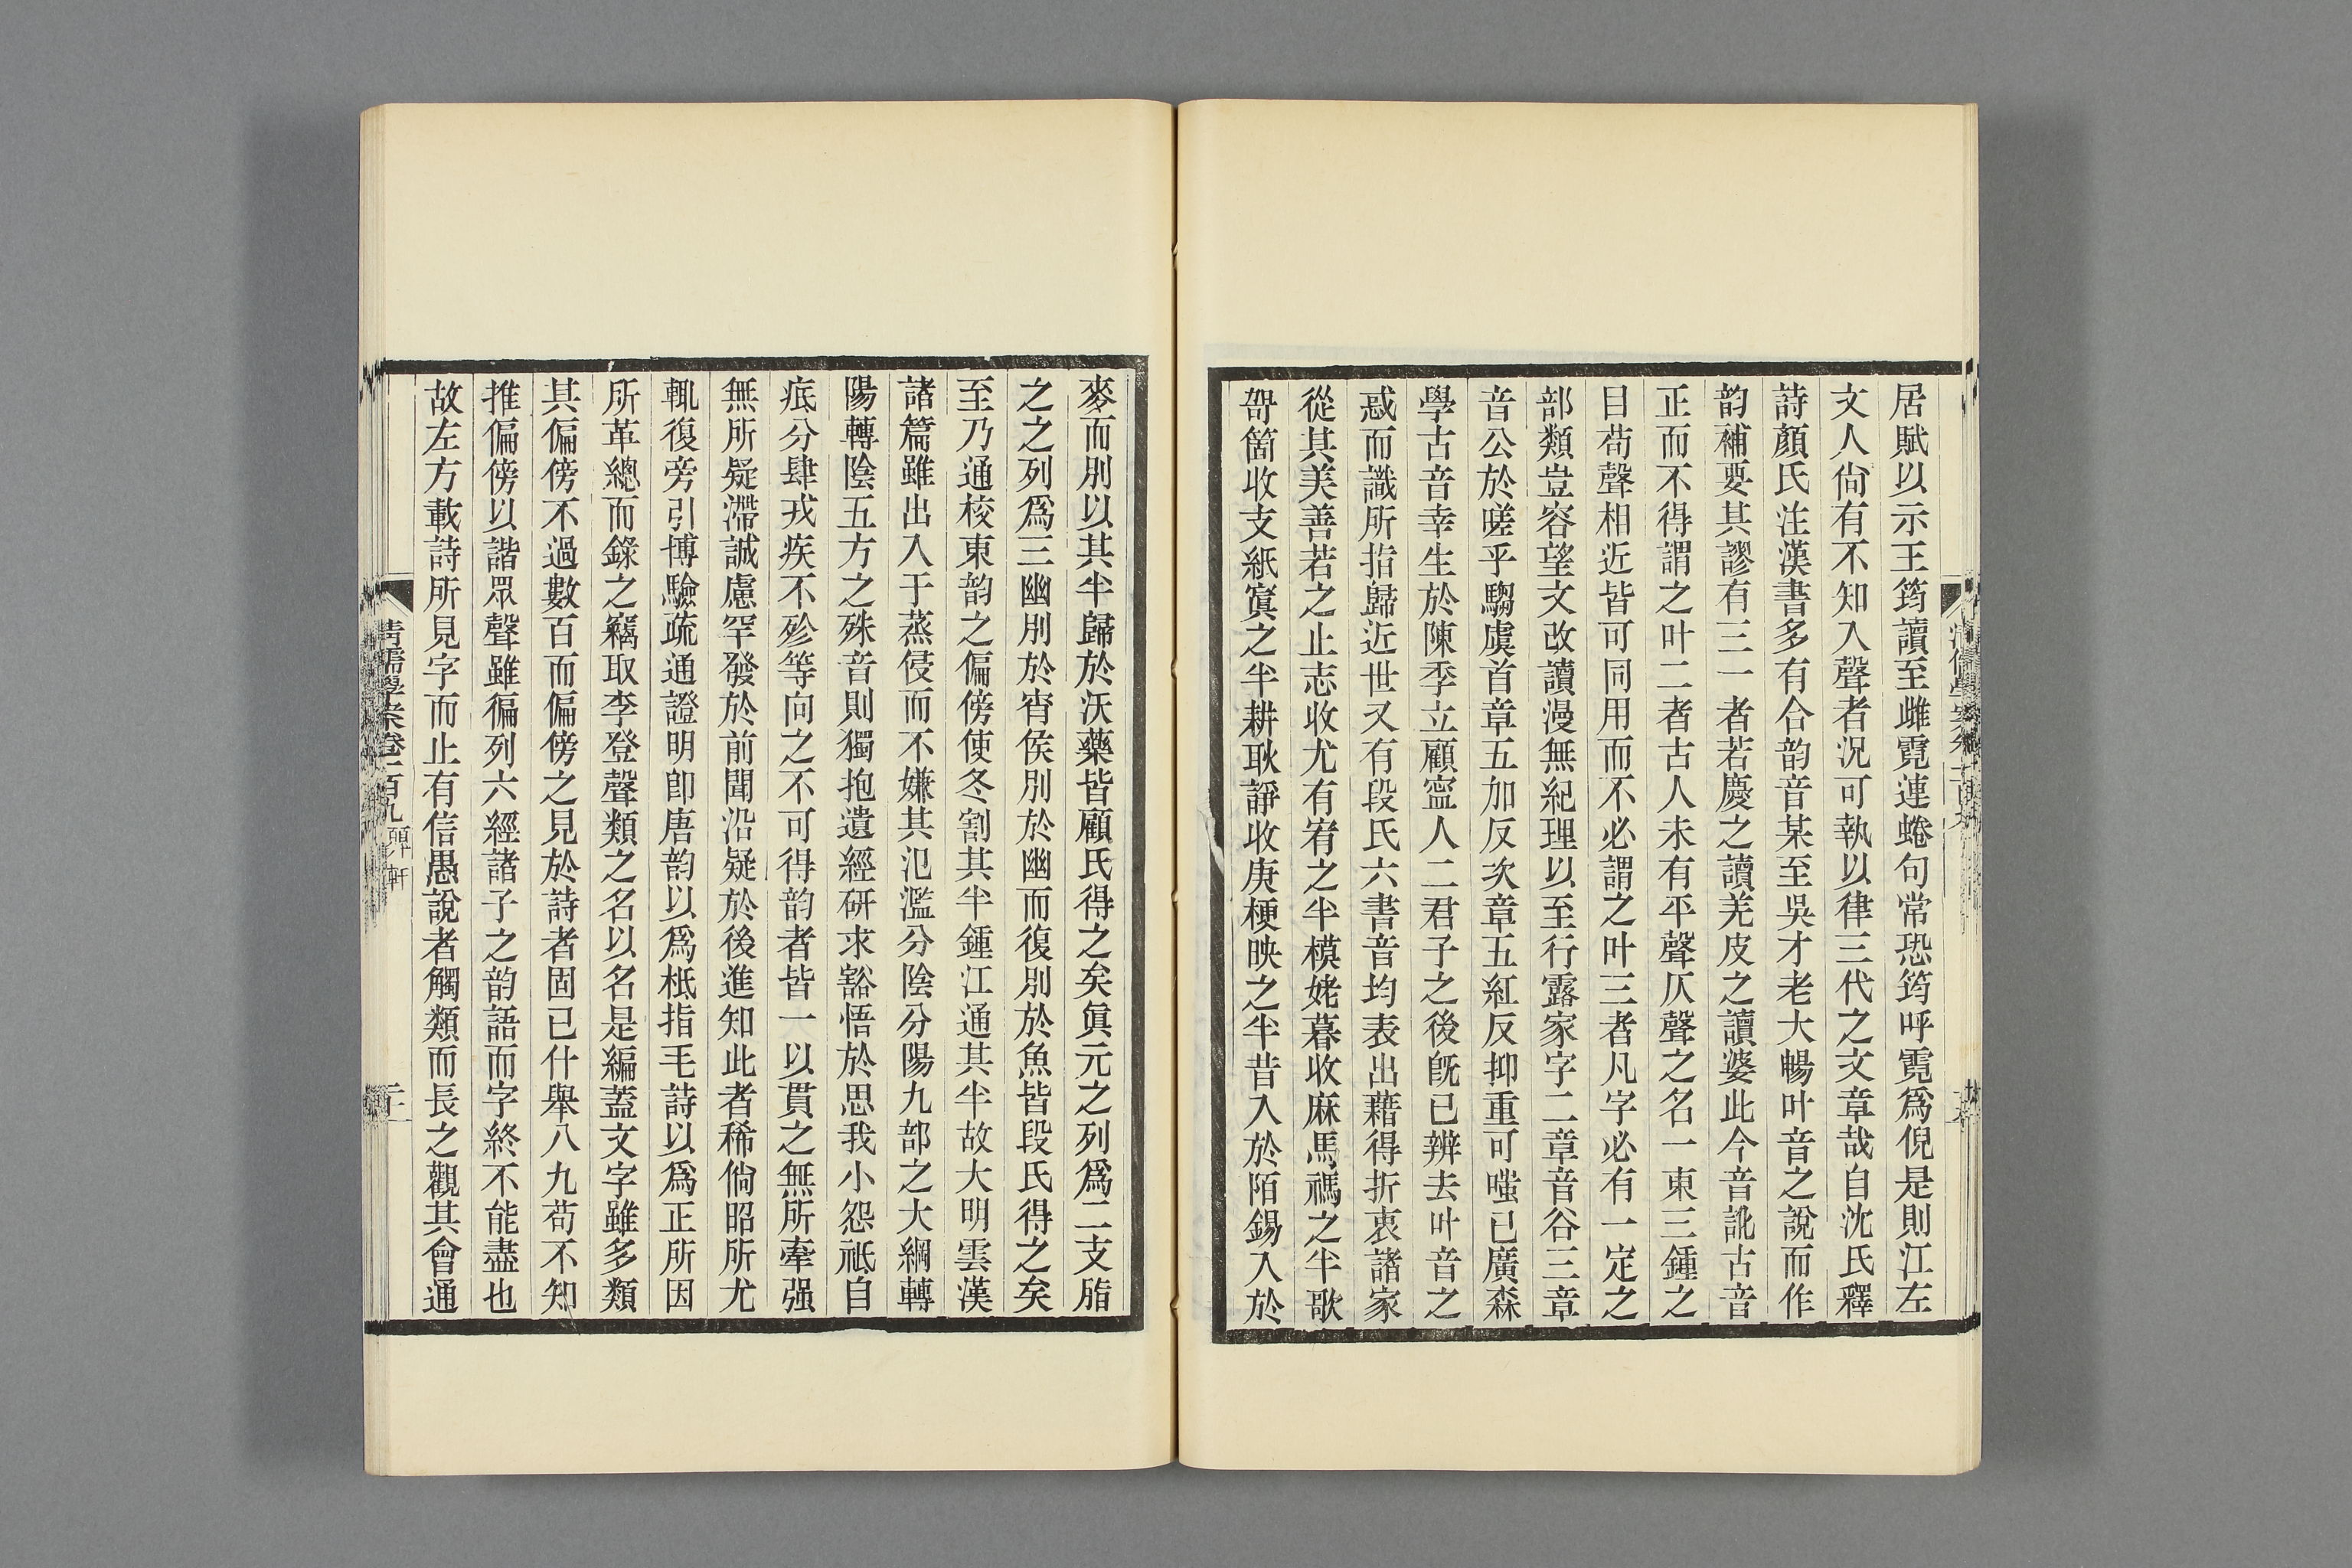 居賦以示王筠讀至雌霓連蜷句常恐筠呼霓爲倪是則江左
文人尙有不知入聲者況可執以律三代之文章哉自沈氏釋
詩顏氏注漢書多有合韵音某至吳才老大暢叶音之說而作
韵補要其謬有三一者若慶之讀羌皮之讀婆此今音訛古音
正而不得謂之叶二者古人未有平聲仄聲之名一東三鍾之
目苟聲相近皆可同用而不必謂之叶三者凡字必有一定之
部類豈容望文改讀漫無紀理以至行露家字二章音谷三章
音公於嗟乎騶虞首章五加反次章五紅反抑重可嗤已廣森
學古音幸生於陳季立顧寧人二君子之後旣已辨去叶音之
惑而識所指歸近世又有段氏六書音均表出藉得折衷諸家
從其美善若之止志收尤有宥之半模姥暮收麻馬禡之半歌
哿箇收支紙寘之半耕耿諍收庚梗映之半昔入於陌錫入於
麥而別以其半歸於沃藥皆顧氏得之矣眞元之列爲二支脂
之之列爲三幽別於宵侯別於幽而復別於魚皆段氏得之矣
至乃通校東韵之偏傍使冬割其半鍾江通其半故大明雲漢
諸篇雖出入于蒸侵而不嫌其氾濫分陰分陽九部之大綱轉
陽轉陰五方之殊音則獨抱遺經研求豁悟於思我小怨祗自
疧分肆戎疾不殄等向之不可得韵者皆一以貫之無所牽强
無所疑滯誠慮罕發於前聞沿疑於後進知此者稀倘昭所尤
輒復旁引博驗疏通證明卽唐韵以爲柢指毛詩以爲正所因
所革總而錄之竊取李登聲類之名以名是編蓋文字雖多類
其偏傍不過數百而偏傍之見於詩者固已什舉八九苟不知
推偏傍以諧眾聲雖徧列六經諸子之韵語而字終不能盡也
故左方載詩所見字而止有信愚說者觸類而長之觀其會通
清儒學案卷一百九 顨軒